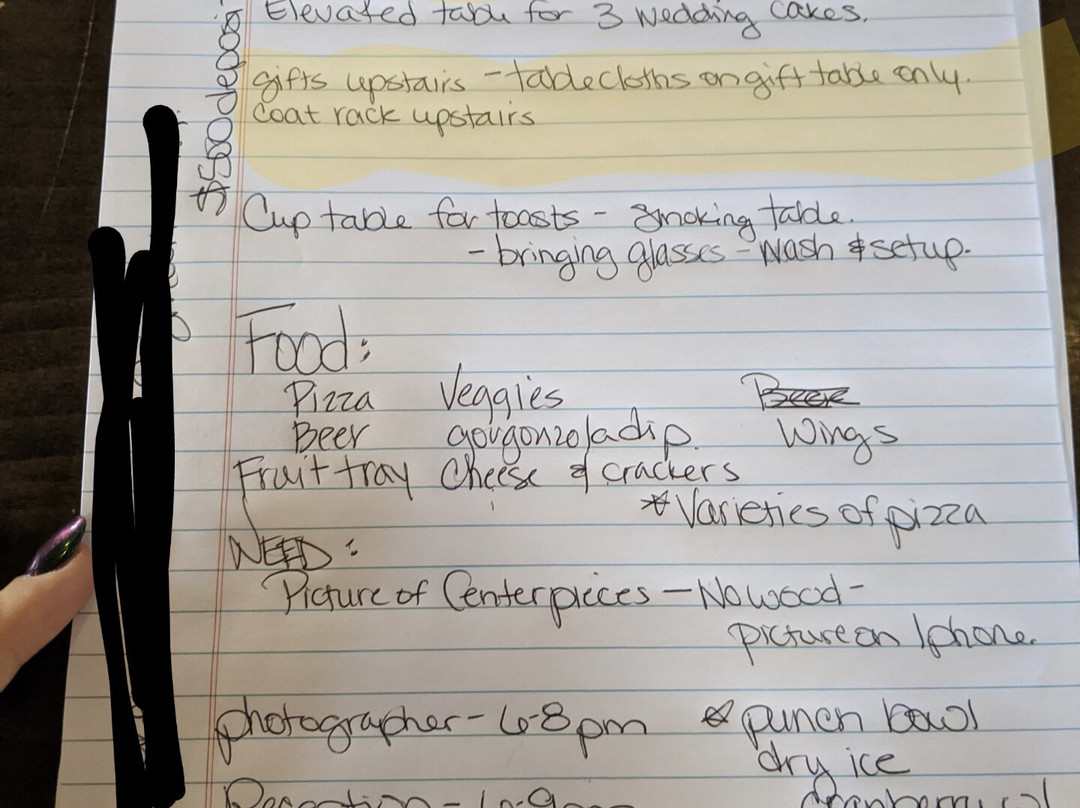 Elevated table for 3 wedding cakes.
gifts upstairs - tablecloths on gift table only.
Coat rack upstairs
$500 depos
Cup table for toasts - smoking table.
- bringing glasses - wash & setup.
Food:
Pizza Veggies Beer
Beer gourgonzola dip. Wings
Fruit tray Cheese & crackers
* Varieties of pizza
NEED:
Picture of Centerpieces - No wood -
picture on Iphone.
photographer - 6-8pm * punch bowl
dry ice
Reception -